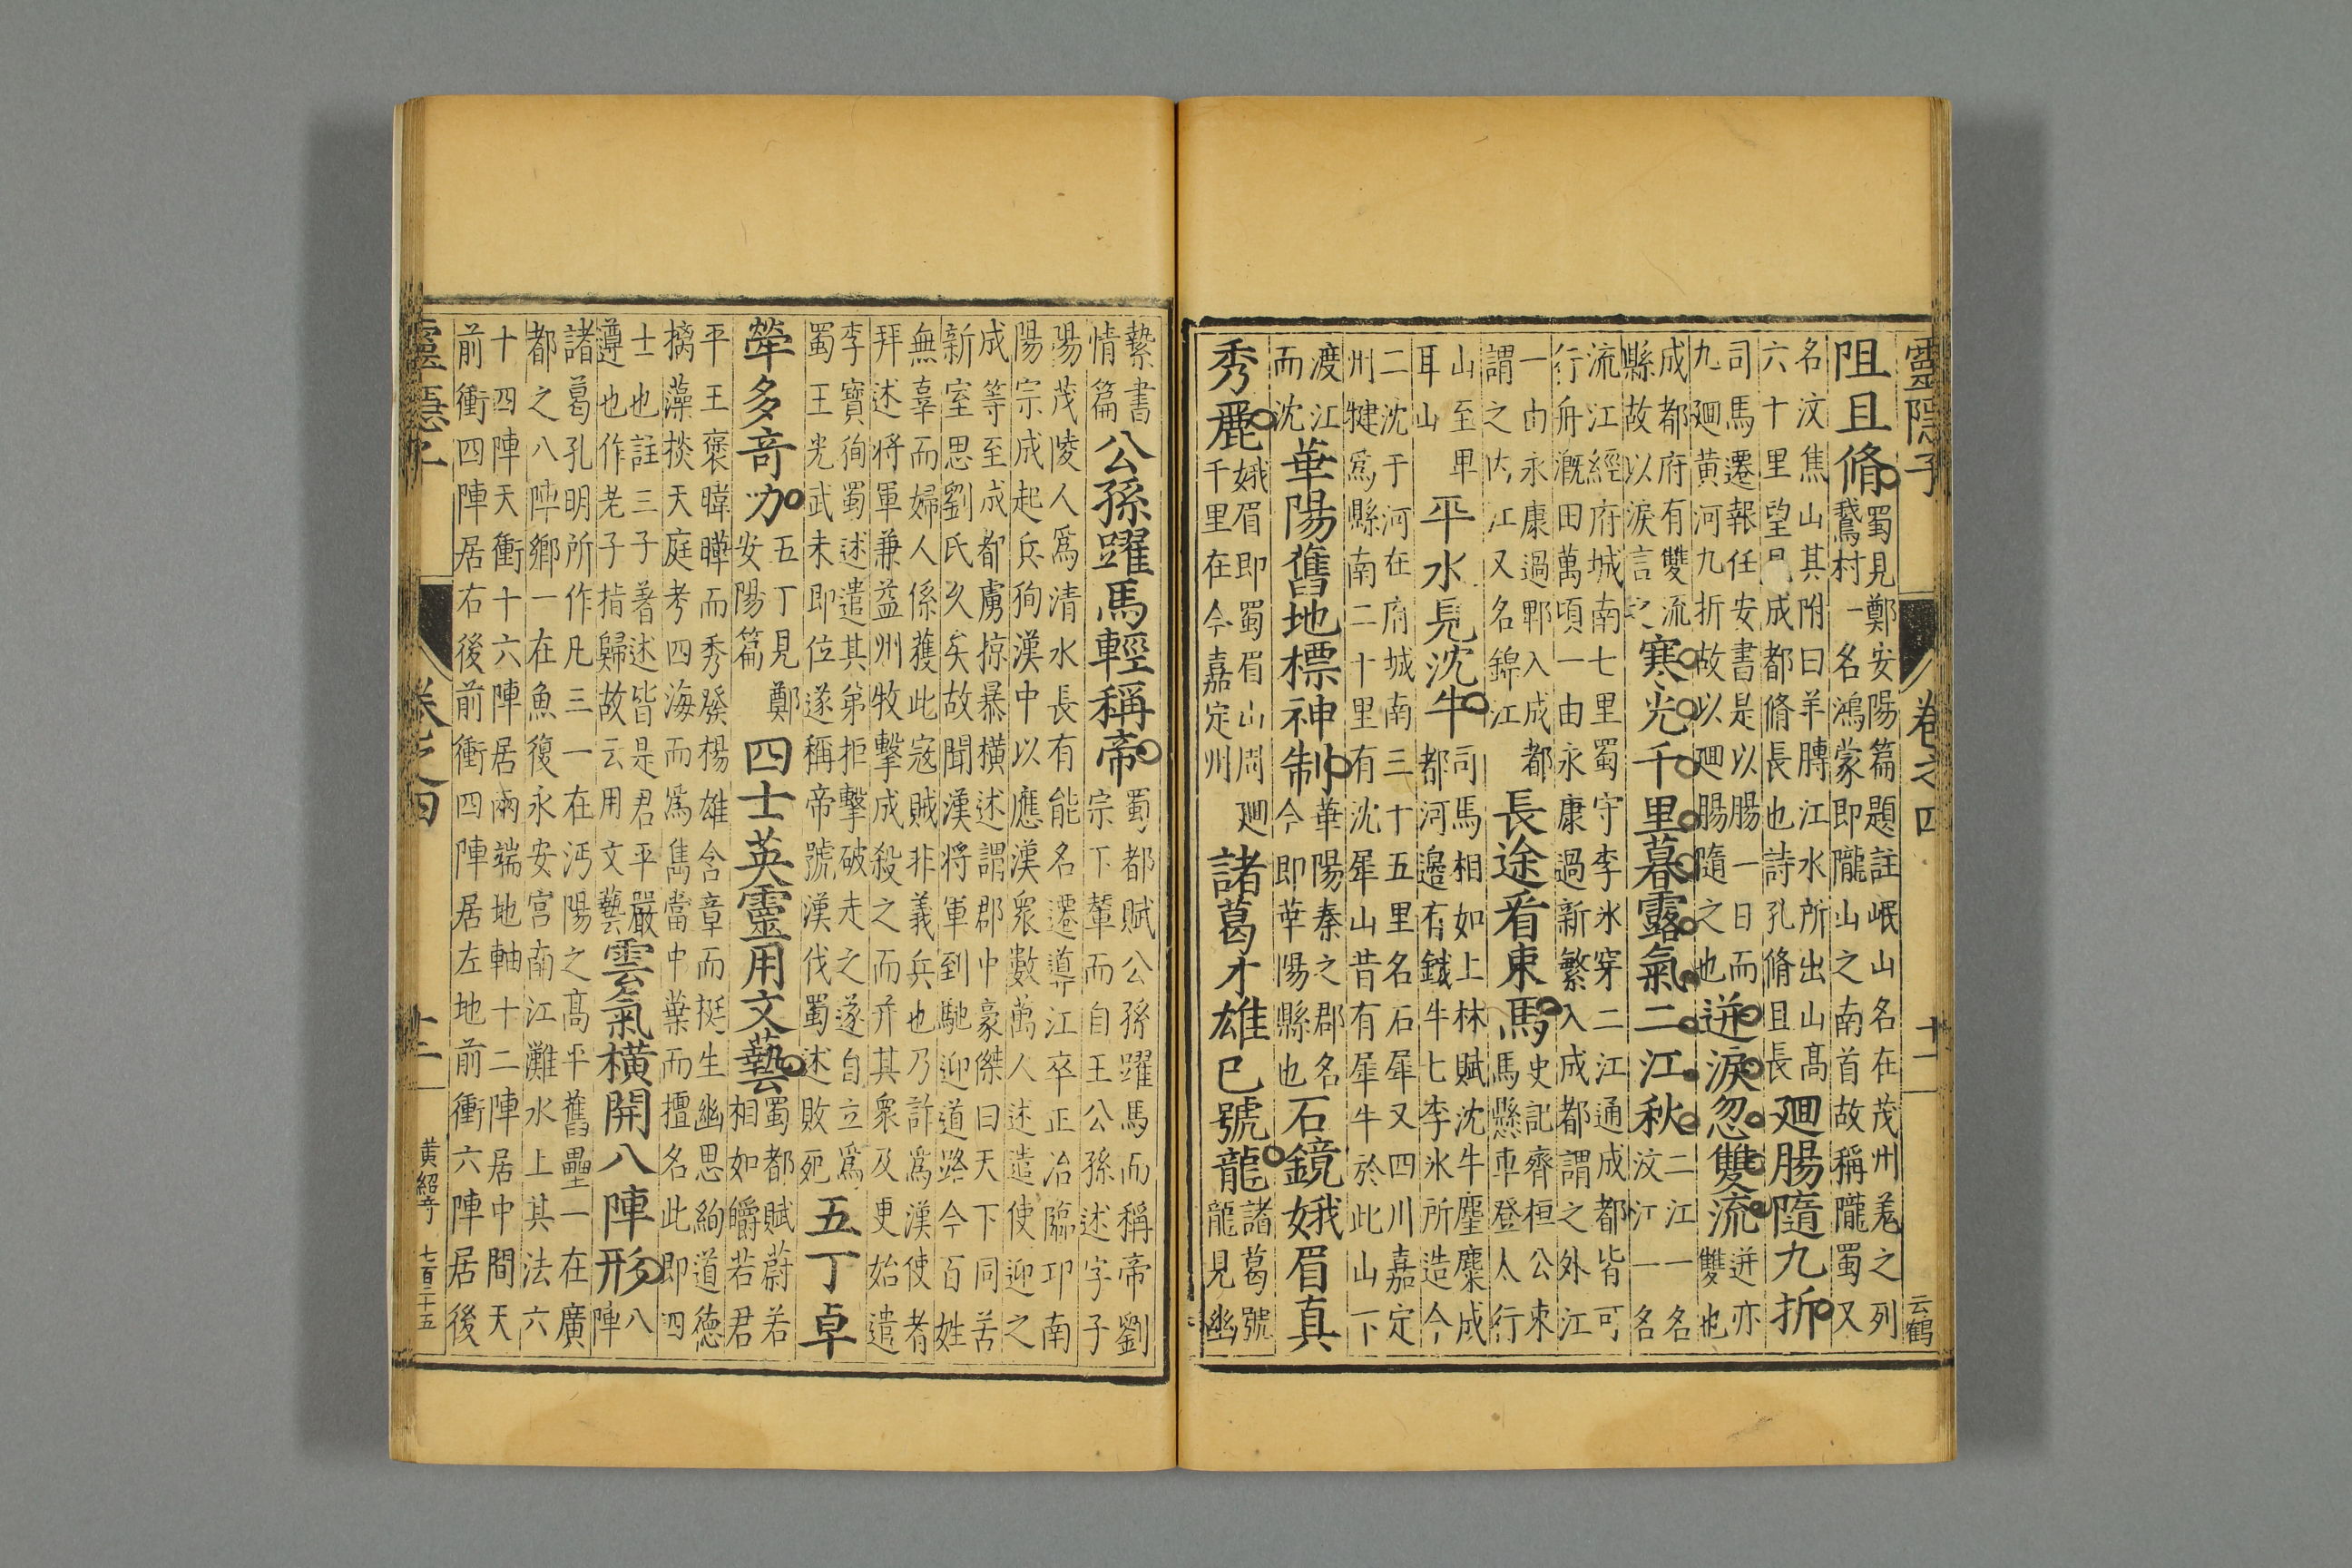 靈隱子 卷之四 十一 云鶴
阻且脩蜀見鄭安陽篇題註岷山名在茂州羗之列
鵞村一名鴻蒙即隴山之南首故稱隴蜀又
名汶焦山其附曰羊膊江水所出山髙
六十里望見成都脩長也詩孔脩且長廻腸隨九折
司馬遷報任安書是以腸一日而
九廻黄河九折故以廻腸隨之也迸淚忽雙流迸亦
雙也
成都府有雙流
縣故以淚言之寒光千里暮露氣二江秋二江一名
汶江一名
流江經府城南七里蜀守李氷穿二江通成都皆可
行舟溉田萬頃一由永康過新繁入成都謂之外江
一由永康過郫入成都
謂之内江又名錦江長途看束馬史記齊桓公束
馬懸車登太行
山至卑
耳山平水見沈牛司馬相如上林賦沈牛麈麋成
都河邉有鐡牛七李氷所造今
二沈于河在府城南三十五里名石犀又四川嘉定
州犍爲縣南二十里有沈犀山昔有犀牛於此山下
渡江
而沈華陽舊地標神制華陽秦之郡名
今即華陽縣也石鏡娥眉真
秀麗娥眉即蜀眉山周廻
千里在今嘉定州諸葛才雄已號龍諸葛號
龍見幽
縶書
情篇公孫躍馬輕稱帝蜀都賦公孫躍馬而稱帝劉
宗下輦而自王公孫述字子
陽茂陵人爲清水長有能名遷導江卒正治臨卭南
陽宗成起兵狥漢中以應漢衆數萬人述遣使迎之
成等至成都虜掠暴橫述謂郡中豪傑曰天下同苦
新室思劉氏久矣故聞漢將軍到馳迎道路今百姓
無辜而婦人係獲此寇賊非義兵也乃詐爲漢使者
拜述將軍兼益州牧擊成殺之而并其衆及更始遣
李寳狥蜀述遣其弟拒擊破走之遂自立爲
蜀王光武未即位遂稱帝號漢伐蜀述敗死五丁卓
犖多奇力五丁見鄭
安陽篇四士英靈用文藝蜀都賦蔚若
相如皭若君
平王褒暐曄而秀發楊雄含章而挺生幽思絢道德
摛藻掞天庭考四海而爲雋當中葉而擅名此即四
士也註三子著述皆是君平嚴
遵也作老子指歸故云用文藝雲氣橫開八陣形八
陣
諸葛孔明所作凡三一在沔陽之髙平舊壘一在廣
都之八陣鄉一在魚復永安宫南江灘水上其法六
十四陣天衝十六陣居兩端地軸十二陣居中間天
前衝四陣居右後前衝四陣居左地前衝六陣居後
靈隱子 卷之四 十二 黄紹亨 七百二十五